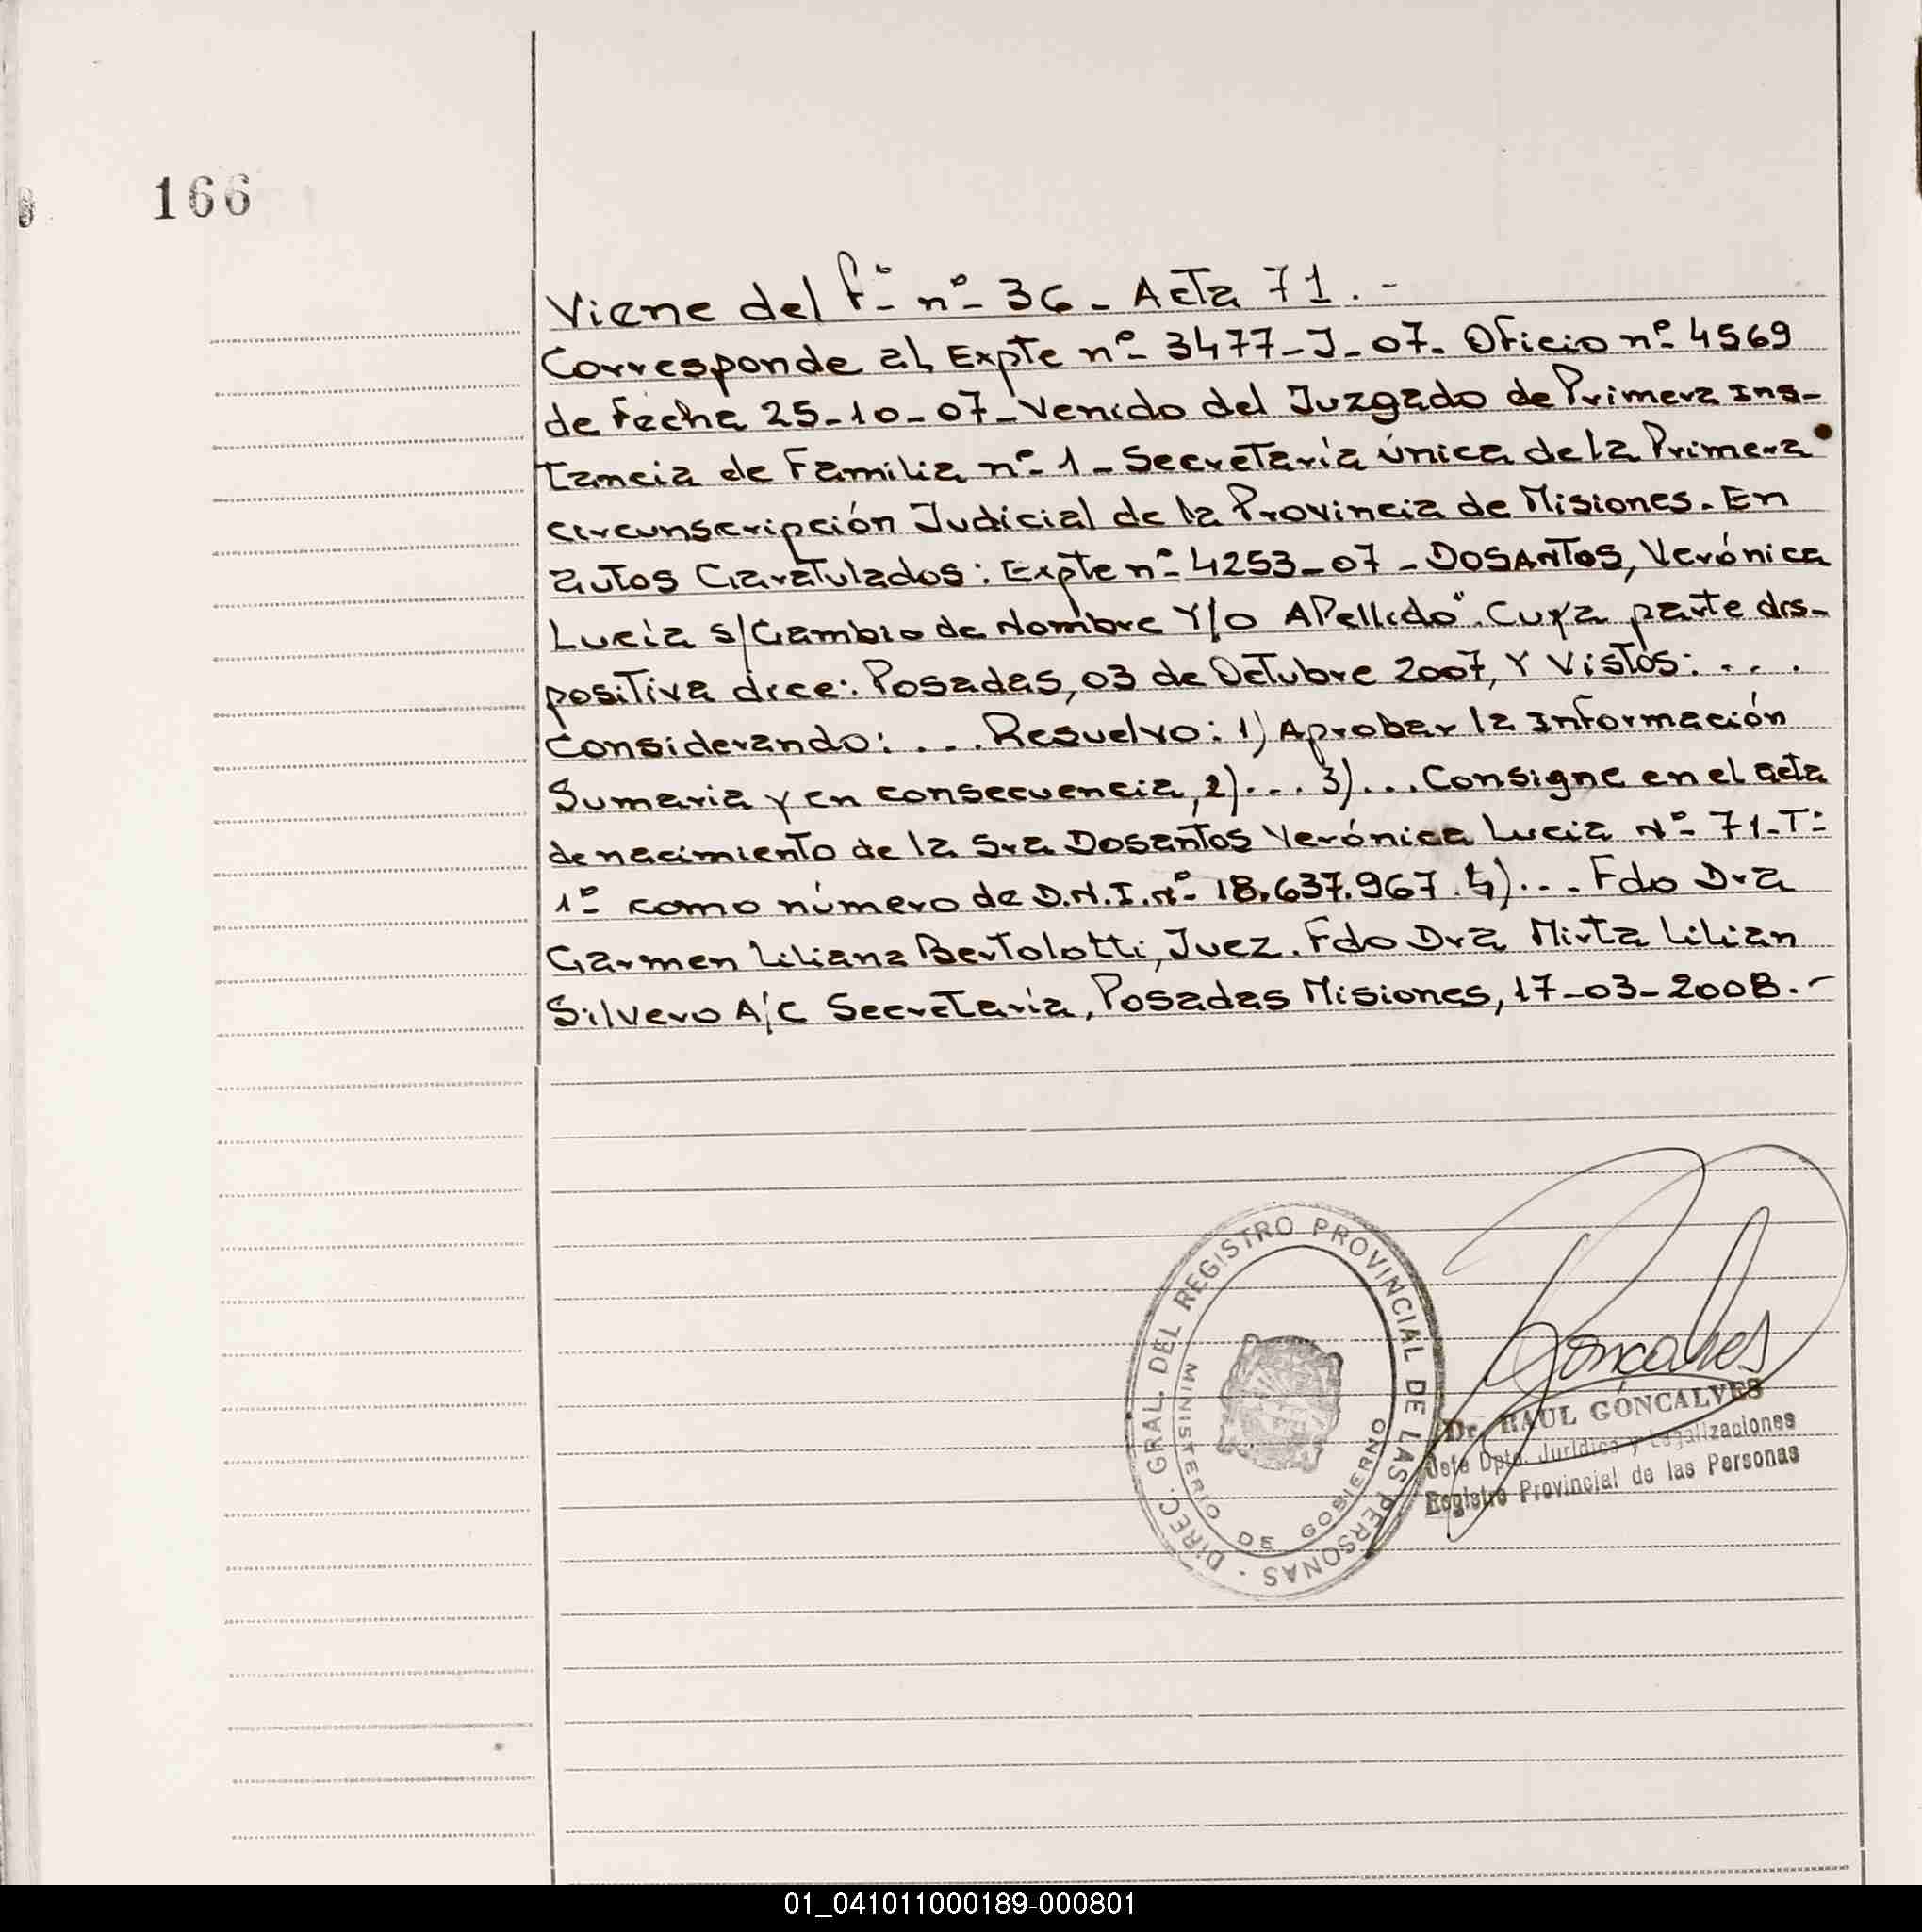 166
Viene del fº nº 36 - Acta 71. -
Corresponde al Expte nº 3477-J-07. Oficio nº 4569
de Fecha 25-10-07-Venido del Juzgado de Primera Ins-
tancia de Familia nº 1 - Secretaría única de la Primera
circunscripción Judicial de la Provincia de Misiones. En
autos Caratulados: Expte nº 4253-07 - DOSANTOS, Verónica
Lucia s/Cambio de Nombre Y/o APellido". Cuya parte dis-
positiva dice: Posadas, 03 de Octubre 2007, Y Vistos: ...
Considerando: ... Resuelvo: 1) Aprobar la Información
Sumaria y en consecuencia, 2).... 3)... Consigne en el acta
de nacimiento de la Sra Dosantos Verónica Lucia Nº 71-Tº
1º como número de D.N.I.Nº 18.637.967. 4).... Fdo Dra
Carmen Liliana Bertolotti, Juez. Fdo Dra Mirta Lilian
Silvero A/C Secretaría, Posadas Misiones, 17-03-2008.-
DIREC. GRAL. DEL REGISTRO PROVINCIAL DE LAS PERSONAS
MINISTERIO DE GOBIERNO
Goncalves
Dr. RAUL GONCALVES
Jefe Dpto. Jurídico y Legalizaciones
Registro Provincial de las Personas
01_041011000189-000801